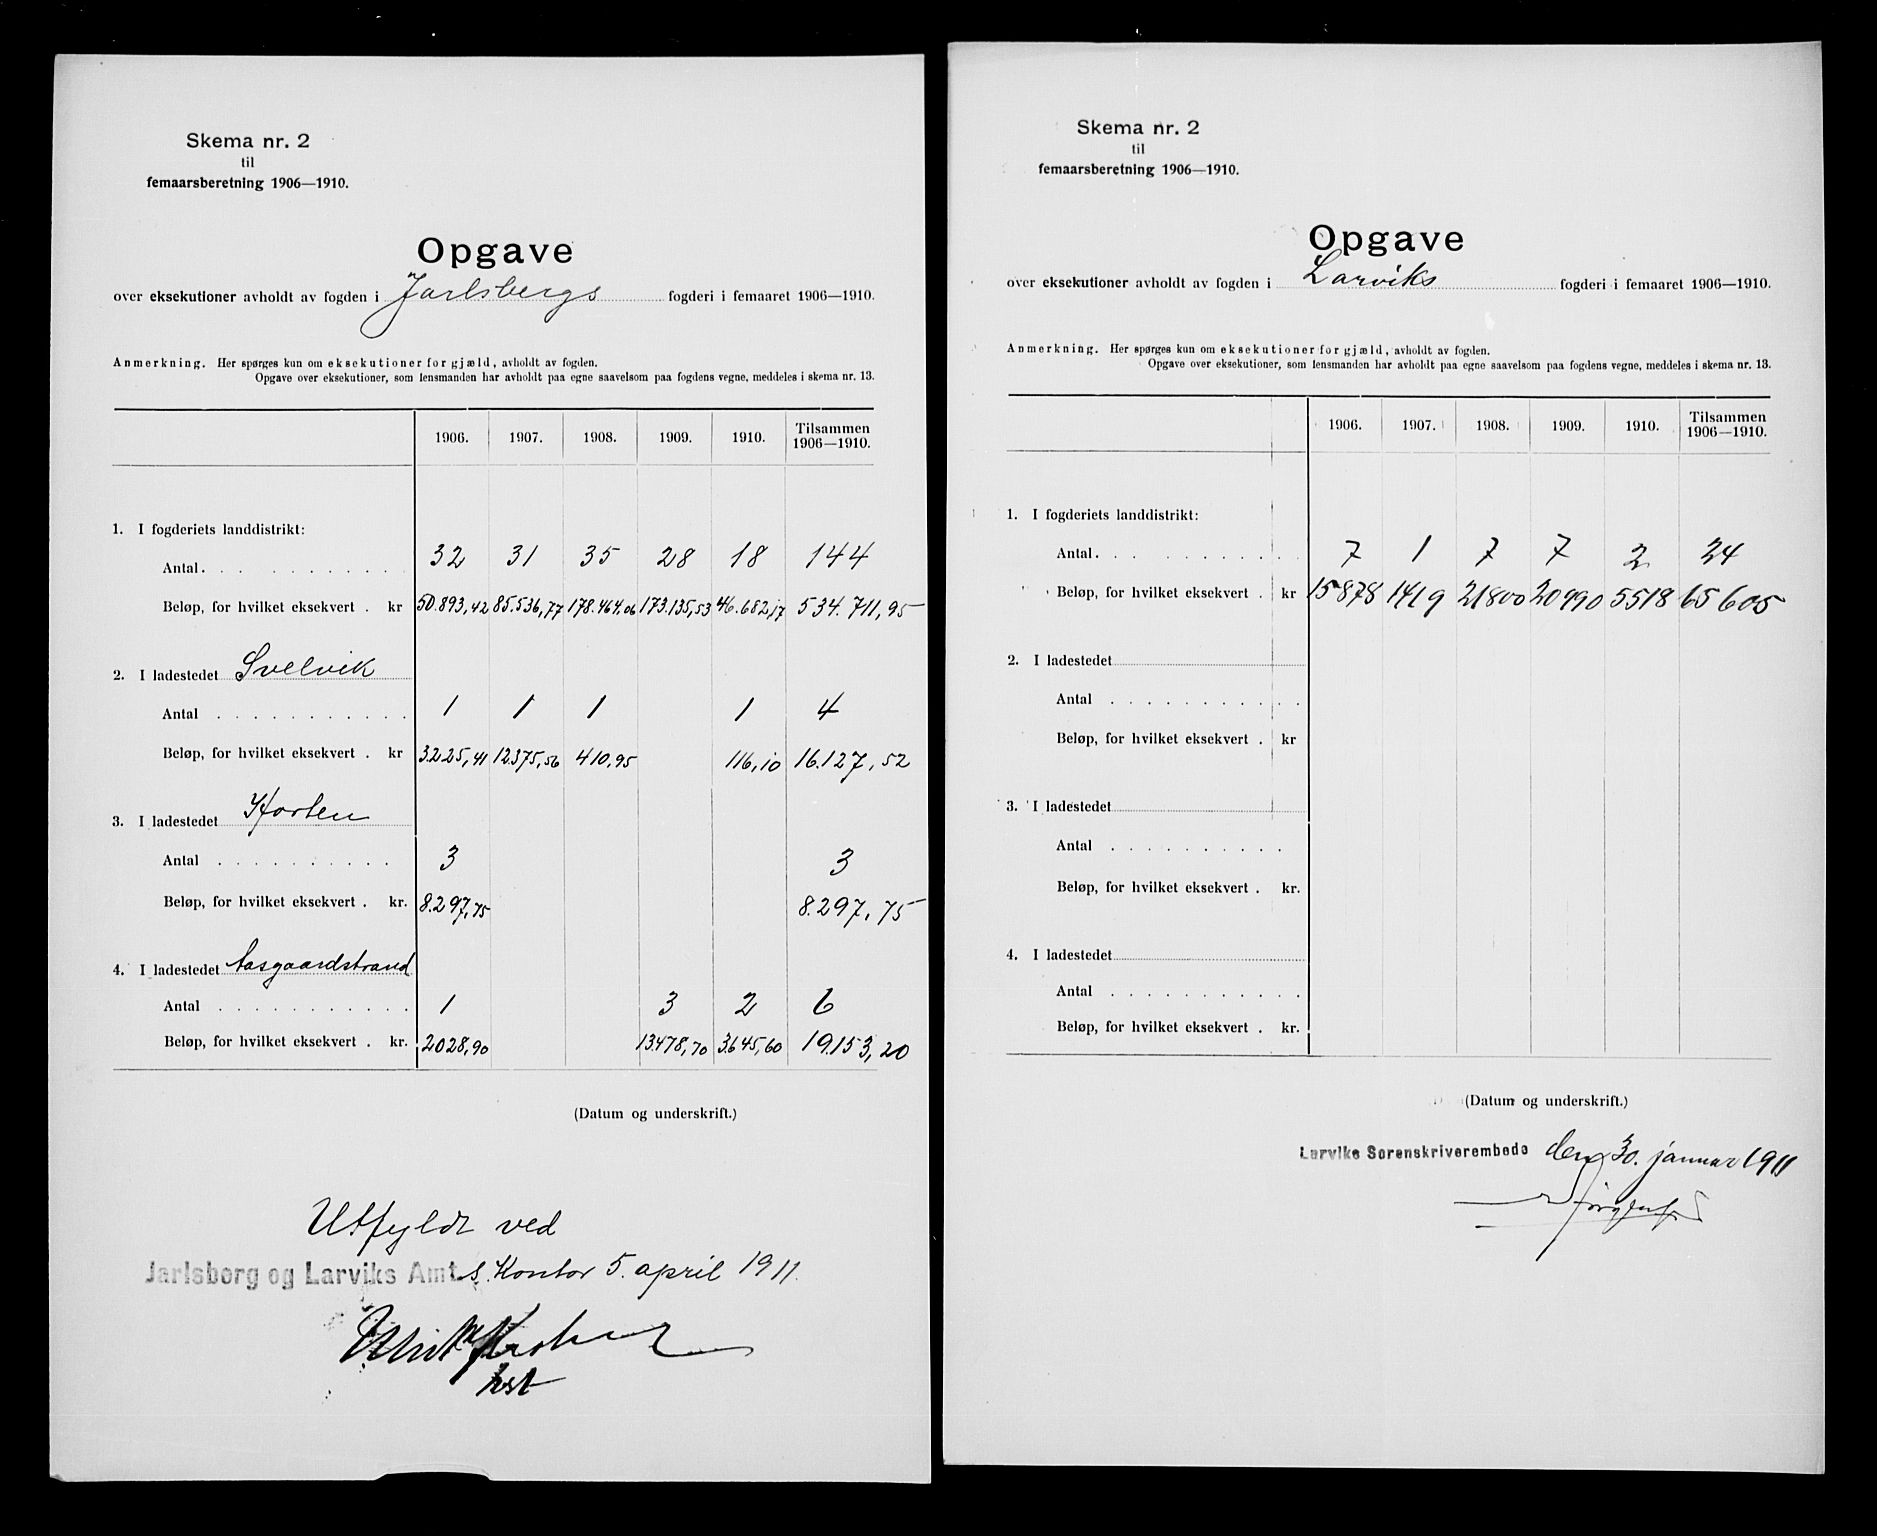 Skema nr. 2
til
femaarsberetning 1906—1910.
Opgave
over eksekutioner avholdt av fogden i Jarlsbergs fogderi i femaaret 1906—1910.
Anmerkning. Her spørges kun om eksekutioner for gjæld, avholdt av fogden.
Opgave over eksekutioner, som lensmanden har avholdt paa egne saavelsom paa fogdens vegne, meddeles i skema nr. 13.
1906. 1907. 1908. 1909. 1910. Tilsammen 1906—1910.
1. I fogderiets landdistrikt:
Antal 32 31 35 28 18 144
Beløp, for hvilket eksekvert . kr 50.893,42 85.536,77 178.464.06 173.135,53 46.682,17 534.711,95
2. I ladestedet Svelvik
Antal 1 1 1 1 4
Beløp, for hvilket eksekvert . kr 3.225,41 12.375,56 410,95 116,10 16.127,52
3. I ladestedet Horten
Antal 3 3
Beløp, for hvilket eksekvert . kr. 8.297,75 8.297,75
4. I ladestedet Aasgaardstrand
Antal 1 3 2 6
Beløp, for hvilket eksekvert . kr. 2028,90 13.478,70 3.645,60 19.153,20
(Datum og underskrift.)
Utfyldt ved
Jarlsberg og Larviks Amts. Kontor 5. april 1911.
kst
Skema nr. 2
til
femaarsberetning 1906—1910.
Opgave
over eksekutioner avholdt av fogden i Larviks fogderi i femaaret 1906—1910.
Anmerkning. Her spørges kun om eksekutioner for gjæld, avholdt av fogden.
Opgave over eksekutioner, som lensmanden har avholdt paa egne saavelsom paa fogdens vegne, meddeles i skema nr. 13.
1906. 1907. 1908. 1909. 1910. Tilsammen 1906—1910.
1. I fogderiets landdistrikt:
Antal 7 1 7 7 2 24
Beløp, for hvilket eksekvert . kr 15878 1419 21800 20990 5518 65605
2. I ladestedet
Antal
Beløp, for hvilket eksekvert . kr
3. I ladestedet
Antal
Beløp, for hvilket eksekvert . kr.
4. I ladestedet
Antal
Beløp, for hvilket eksekvert . kr.
(Datum og underskrift.)
Larviks Sorenskriverembede den 30. januar 1911